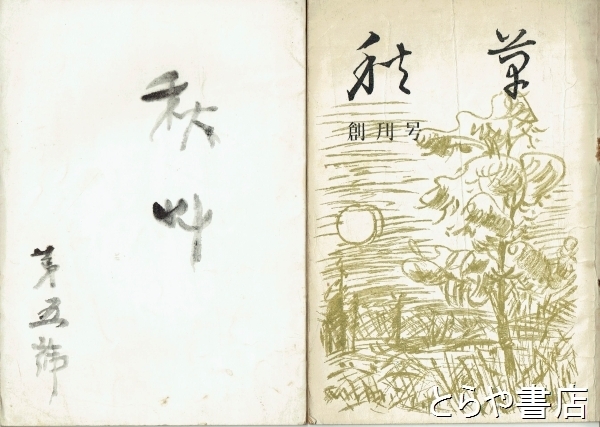 秋
艸
第五號
秋草
創刊号
とらや書店